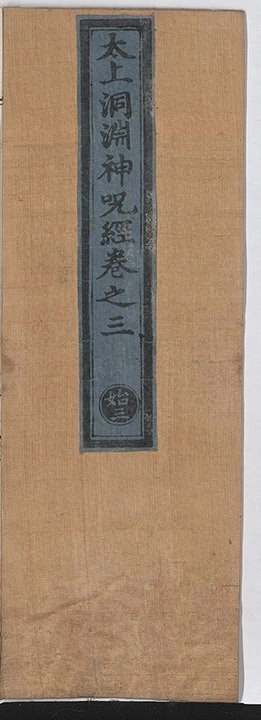 太上洞淵神呪經卷之三
始三